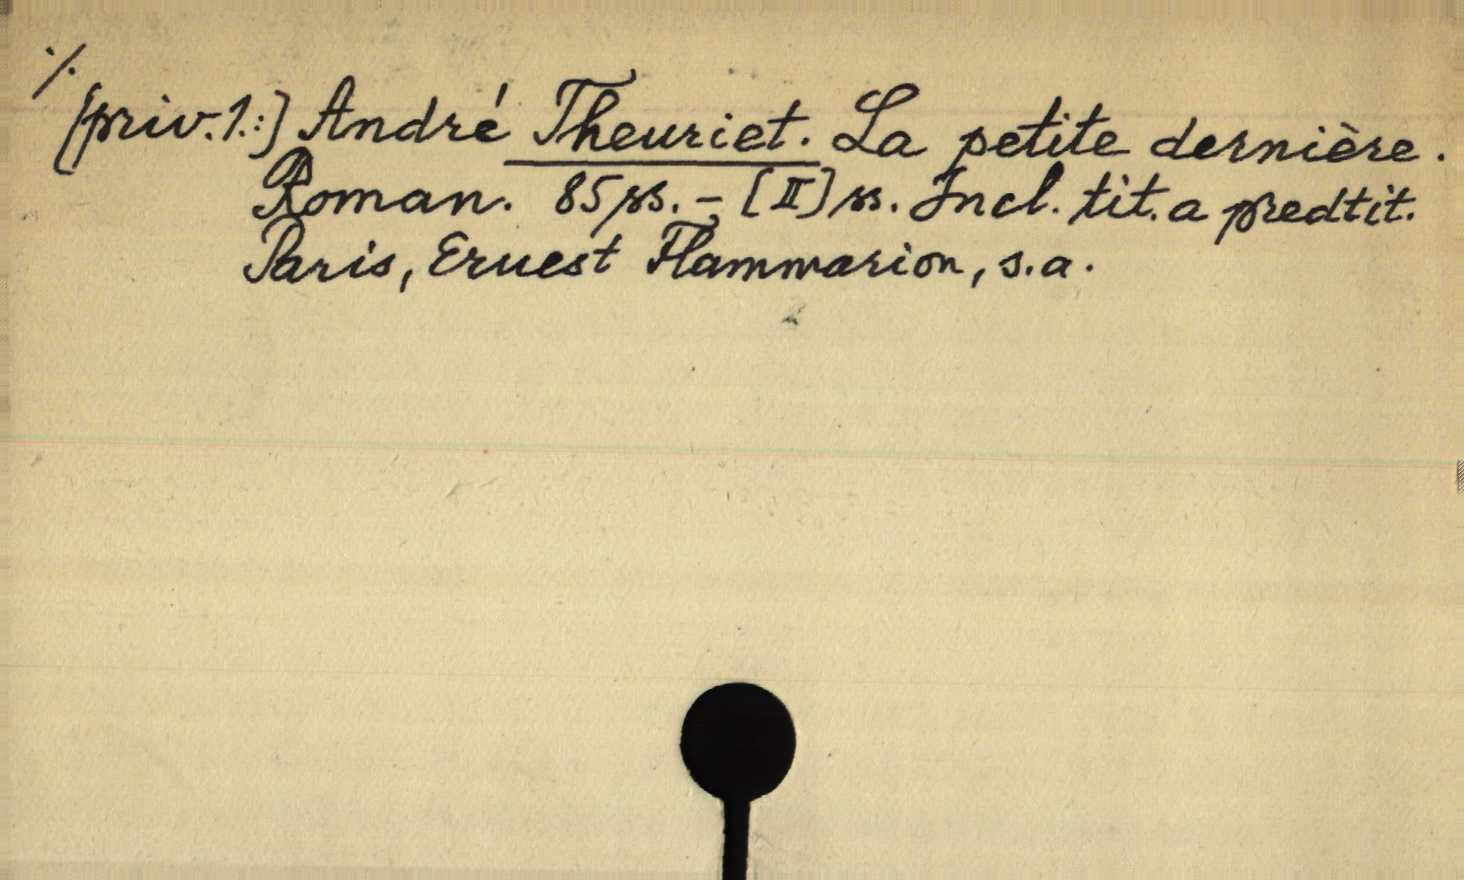 ·/.
[priv. 1.:] André Theuriet. La petite dernière.
Roman. 85 ss. – [II] ss. Incl. tit. a predtit.
Paris, Ernest Flammarion, s.a.